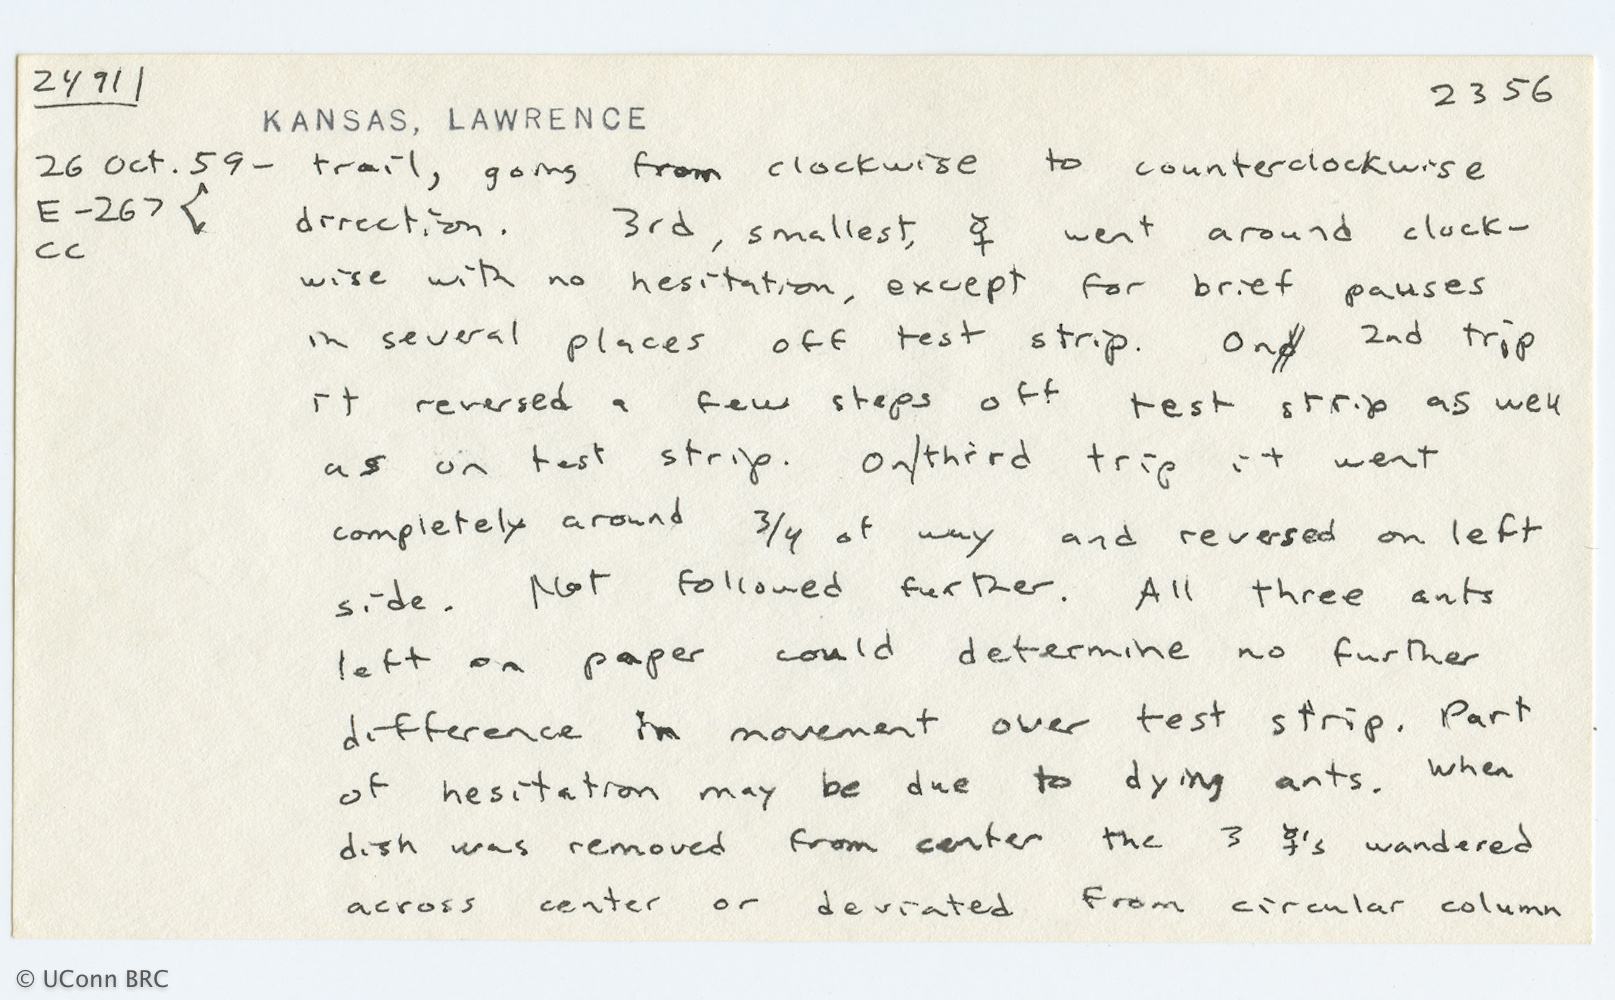 24911
2356
KANSAS, LAWRENCE
26 Oct. 59 - trail, going from clockwise to counterclockwise
E-267 direction. 3rd, smallest, ☿ went around clock-
CC
wise with no hesitation, except for brief pauses
in several places off test strip. On 2nd trip
it reversed a few steps off test strip as well
as on test strip. On/third trip it went
completely around 3/4 of way and reversed on left
side. Not followed further. All three ants
left on paper could determine no further
difference in movement over test strip. Part
of hesitation may be due to dying ants. When
dish was removed from center the 3 ☿'s wandered
across center or deviated from circular column
© UConn BRC